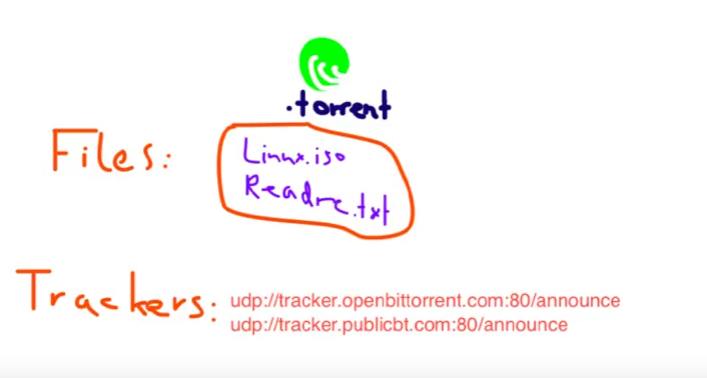 .torrent
Files:
Linux.iso
Readme.txt
Trackers:
udp://tracker.openbittorrent.com:80/announce
udp://tracker.publicbt.com:80/announce